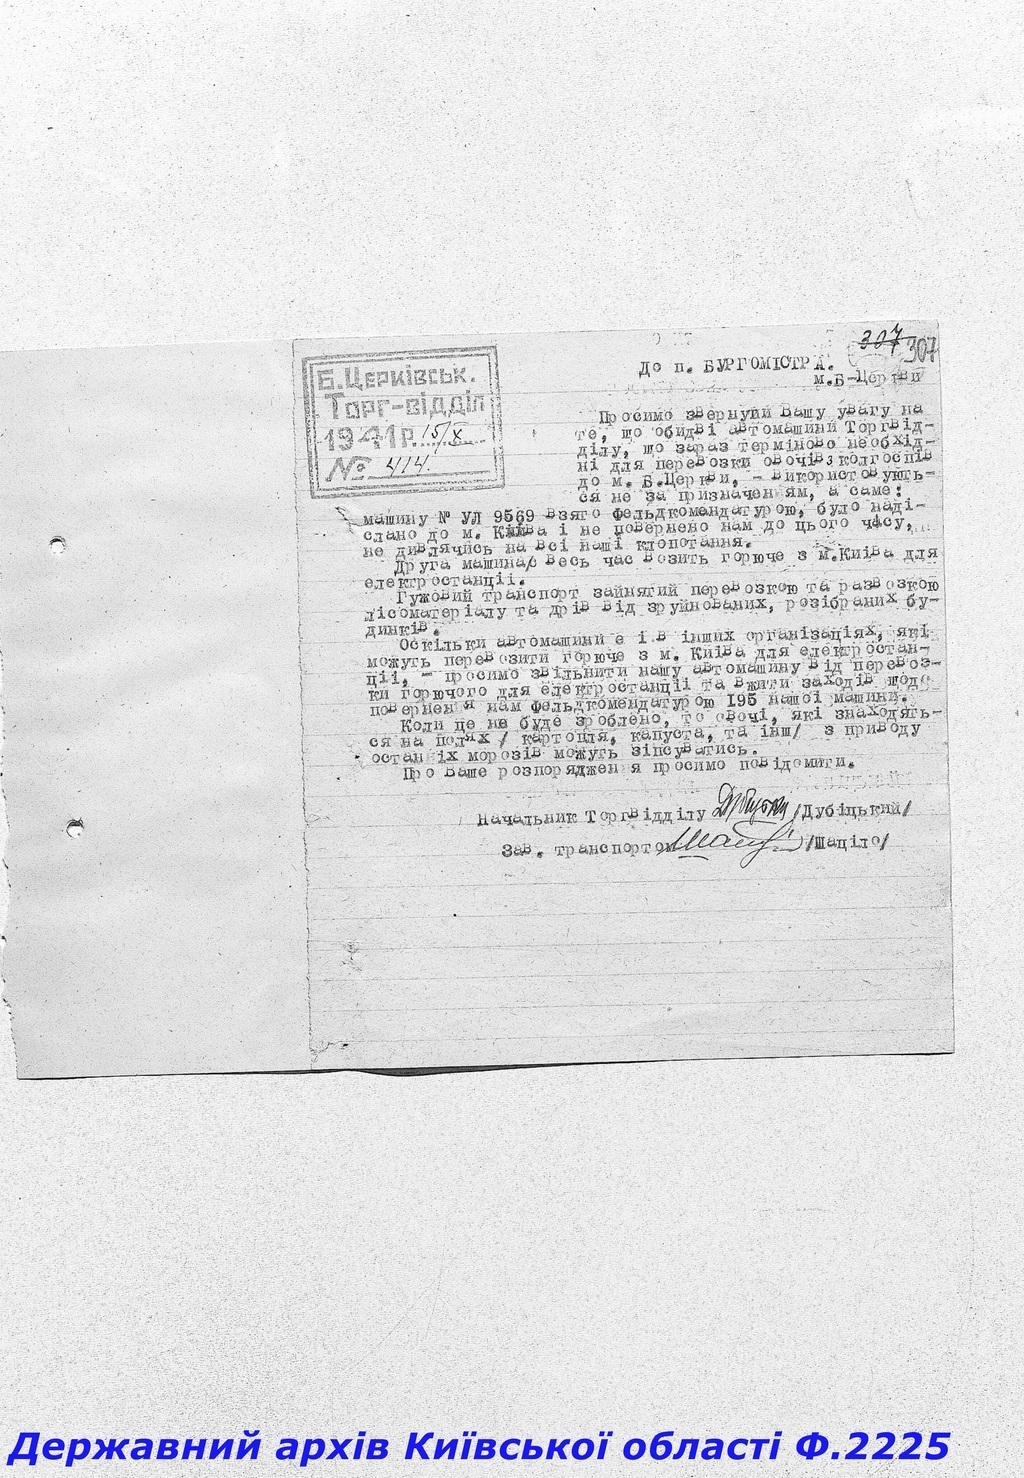 307 307
Б.Церківськ.
Торг-відділ
1941 р. 15/X
№ 414.
До п. БУРГОМІСТРА.
м.Б-Церкви
Просимо звернути Вашу увагу на
те, що обидві автомашини Торгвід-
ділу, що зараз терміново необхід-
ні для перевозки овочів з колгоспів
до м. Б.Церкви, - використовують-
ся не за призначенням, а саме:
машину № УЛ 9569 взято фельдкомендатурою, було наді-
слано до м. Київа і не повернено нам до цього часу,
не дивлячись на всі наші клопотання.
Друга машина/с весь час возить горюче з м.Київа для
електростанціі.
Гужовий транспорт зайнятий перевозкою та развозкою
лісоматеріалу та дрів від зруйнованих, розібраних бу-
динків.
Оскільки автомашини е і в інших організаціях, які
можуть перевозити горюче з м. Київа для електростан-
ціі, - просимо звільнити нашу автомашину від перевоз-
ки горючого для електростанціі та вжити заходів щодо
повернення нам фельдкомендатурою І95 нашоі машини.
Коли це не буде зроблено, то овочі, які знаходять-
ся на полях / картопля, капуста, та інш/ з приводу
останіх морозів можуть зіпсуватись.
Про Ваше розпорядження просимо повідомити.
Начальник Торгвідділу /Дубіцький/
Зав. транспортом /Шаціло/
Державний архів Київської області Ф.2225